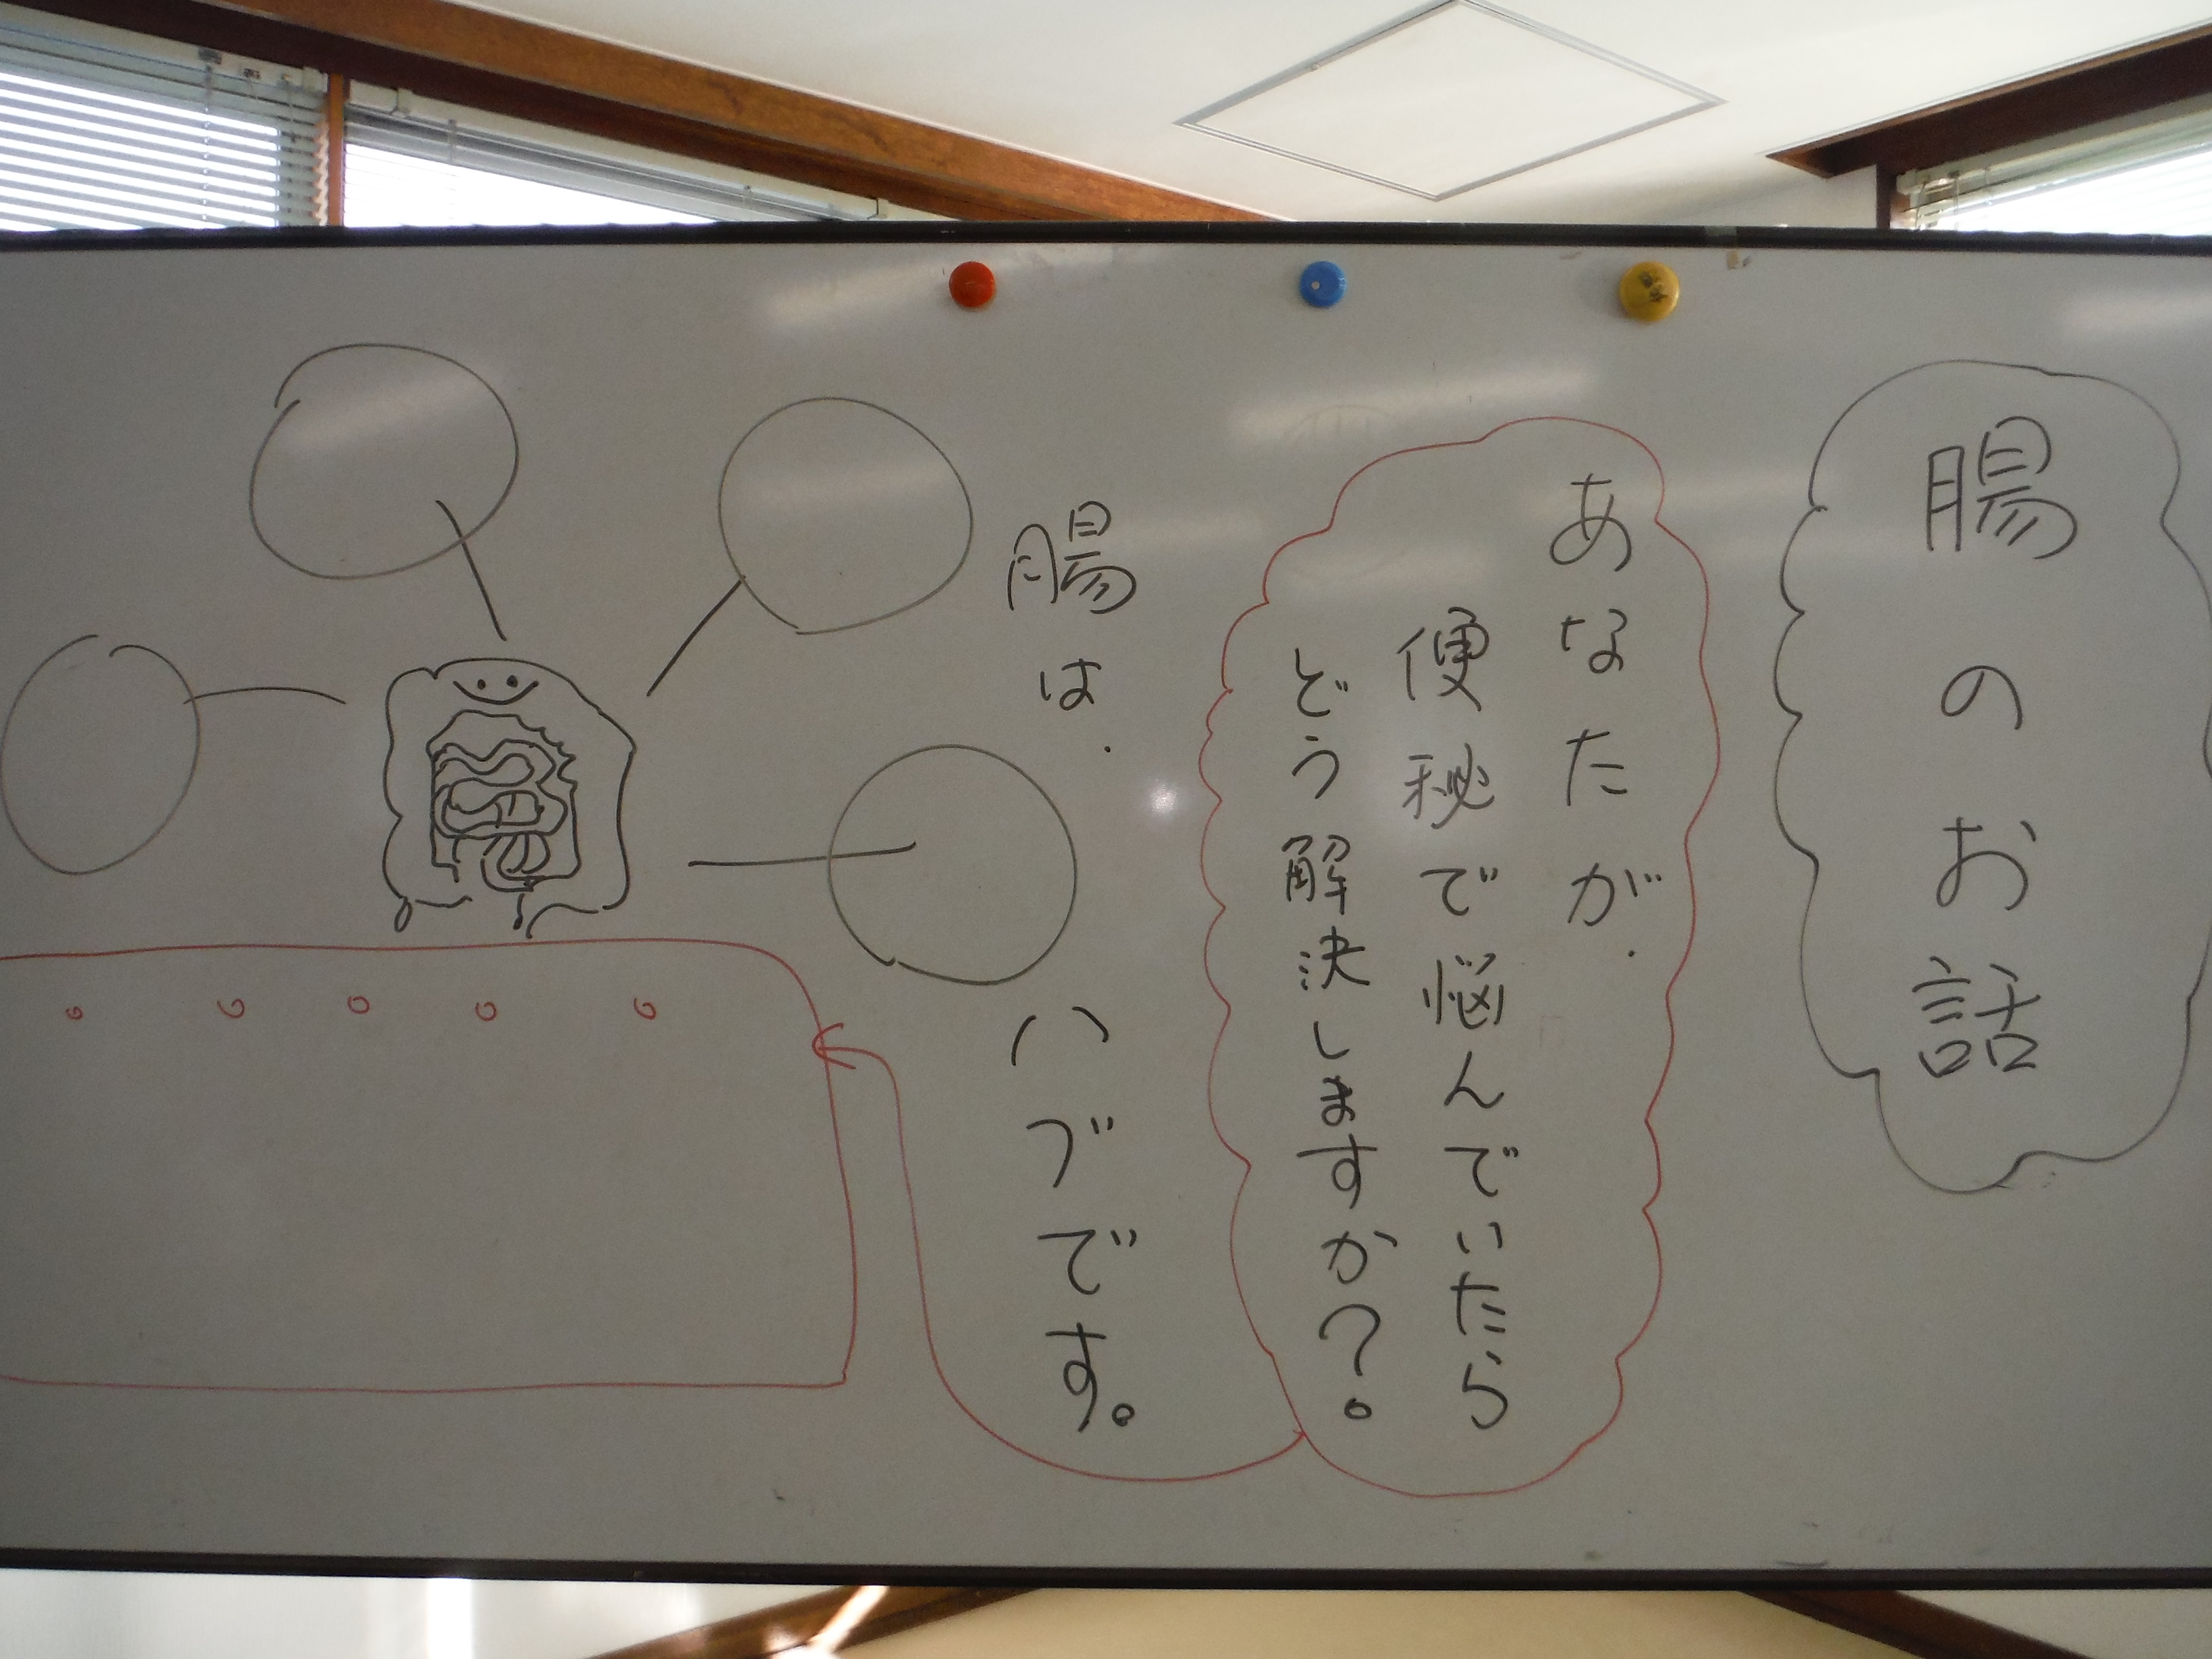 腸のお話
あなたが、
便秘で悩んでいたら
どう解決しますか?。
腸は、
ハブです。